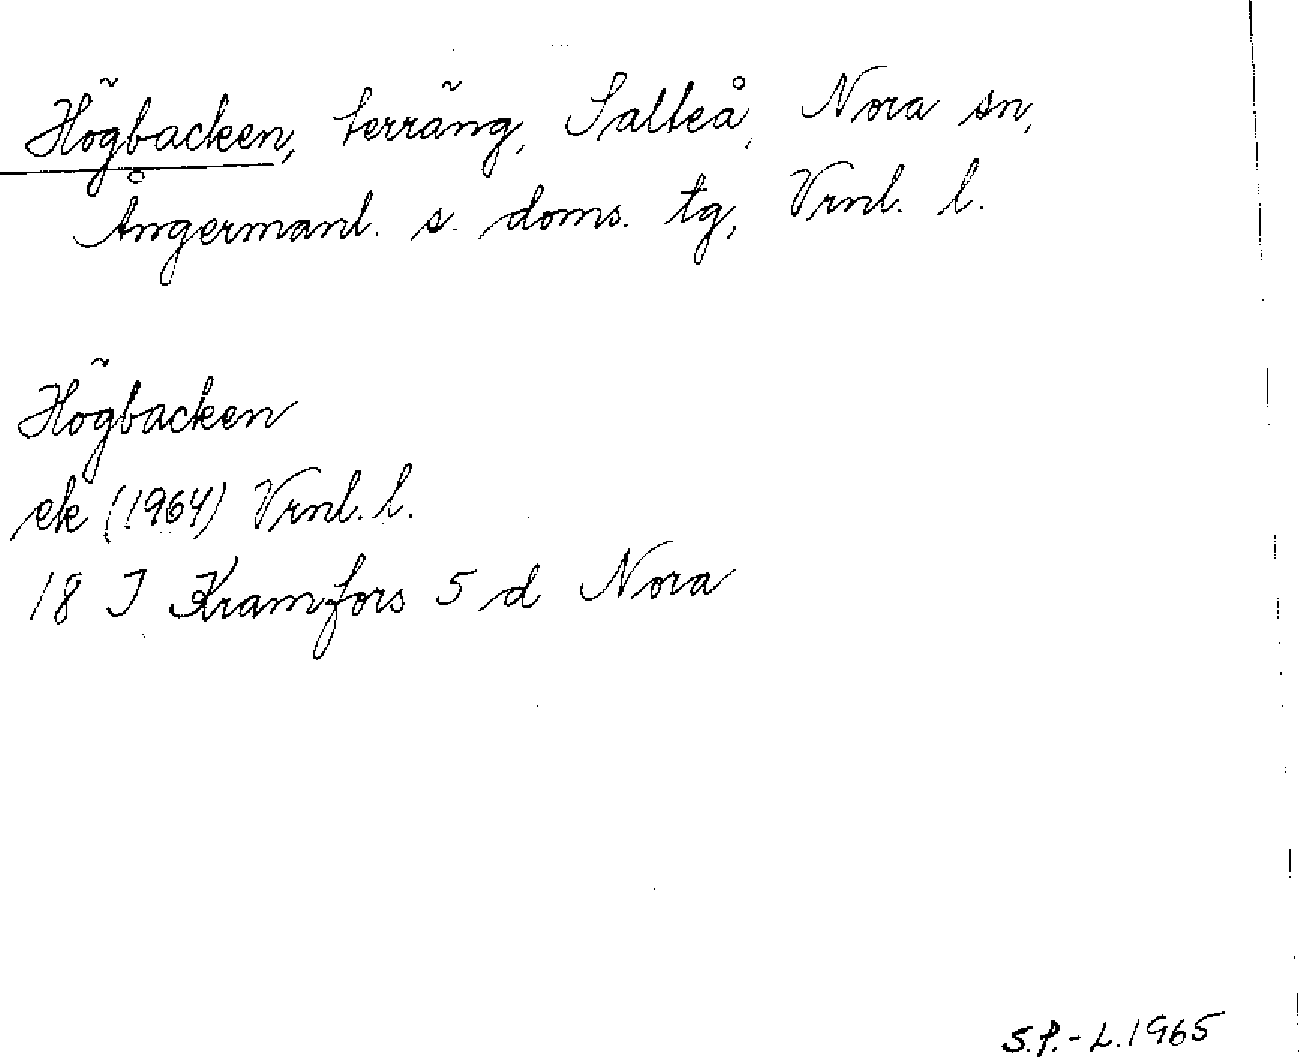 Högbacken, terräng, Salteå, Nora sn,
Ångermanl. s. doms. tg, Vrnl. l.
Högbacken
ek (1964) Vrnl. l.
18 I Kramfors 5 d Nora
S.P.-L. 1965